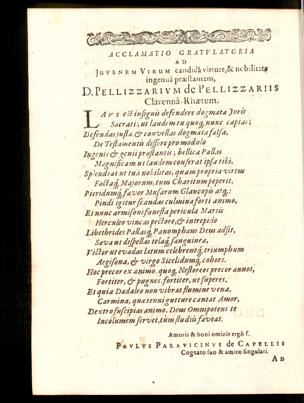 ACCLAMATIO GRATVLATORIA
AD
JUVENEM VIRUM candidâ virtute, & nobilitate
ingenuâ præstantem,
D. PELLIZZARIVM DE PELLIZZARIIS
Clavennâ-Rhætum.
LAus est insignis defendere dogmata Juris
Sacrati; ut laudem tu quoq, nunc captas;
Defendas justa, & convellas dogmata falsa,
De Testamentis differe pro modulo
Ingenii & genii præstantis; bellica Pallas
Magnificam ut laudem conferat ipsa tibi,
Splendeat ut tua nobilitas, quam propria virtus
Factaq, Majorum, tum Charitum peperit,
Pieridumq, favor Musarum Glaucopis atq,
Pindi igitur scandas culmina forti animo,
Et nunc armisoni funesta pericula Martis
Herculeo vincas pectore, & intrepido
Libethrides Pallasq, Panomphæus Deus adsit,
Sæva ut dispellas tela sanguinea,
Victor ut evadas lætum celebrent, triumphum
Aegisona, & virgo Sicelidumq, cohors.
Hoc precor ex animo, quoq, Nestoreos precor annos,
Fortiter, & pugnes, fortiter, ut superes.
Et quia Dædaleo non vibrat flumine vena,
Carmina, quæ tenui gutture cantat Amor,
Dextro suscipias animo. Deus Omnipotens te
Incolumem servet, tum studiis faveat.
Amoris & boni ominis ergò f.
PAVLVS PARAVICINVS DE CAPELLIS
Cognato suo & amico singulari.
AD